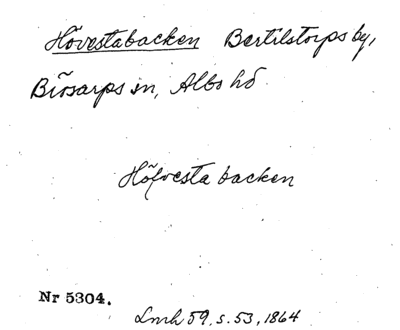 Hövestabacken Bertilstorps by,
Brösarps sn, Albo hd
Höfvesta backen
Nr 5304.
Lmh 59, s. 53, 1864